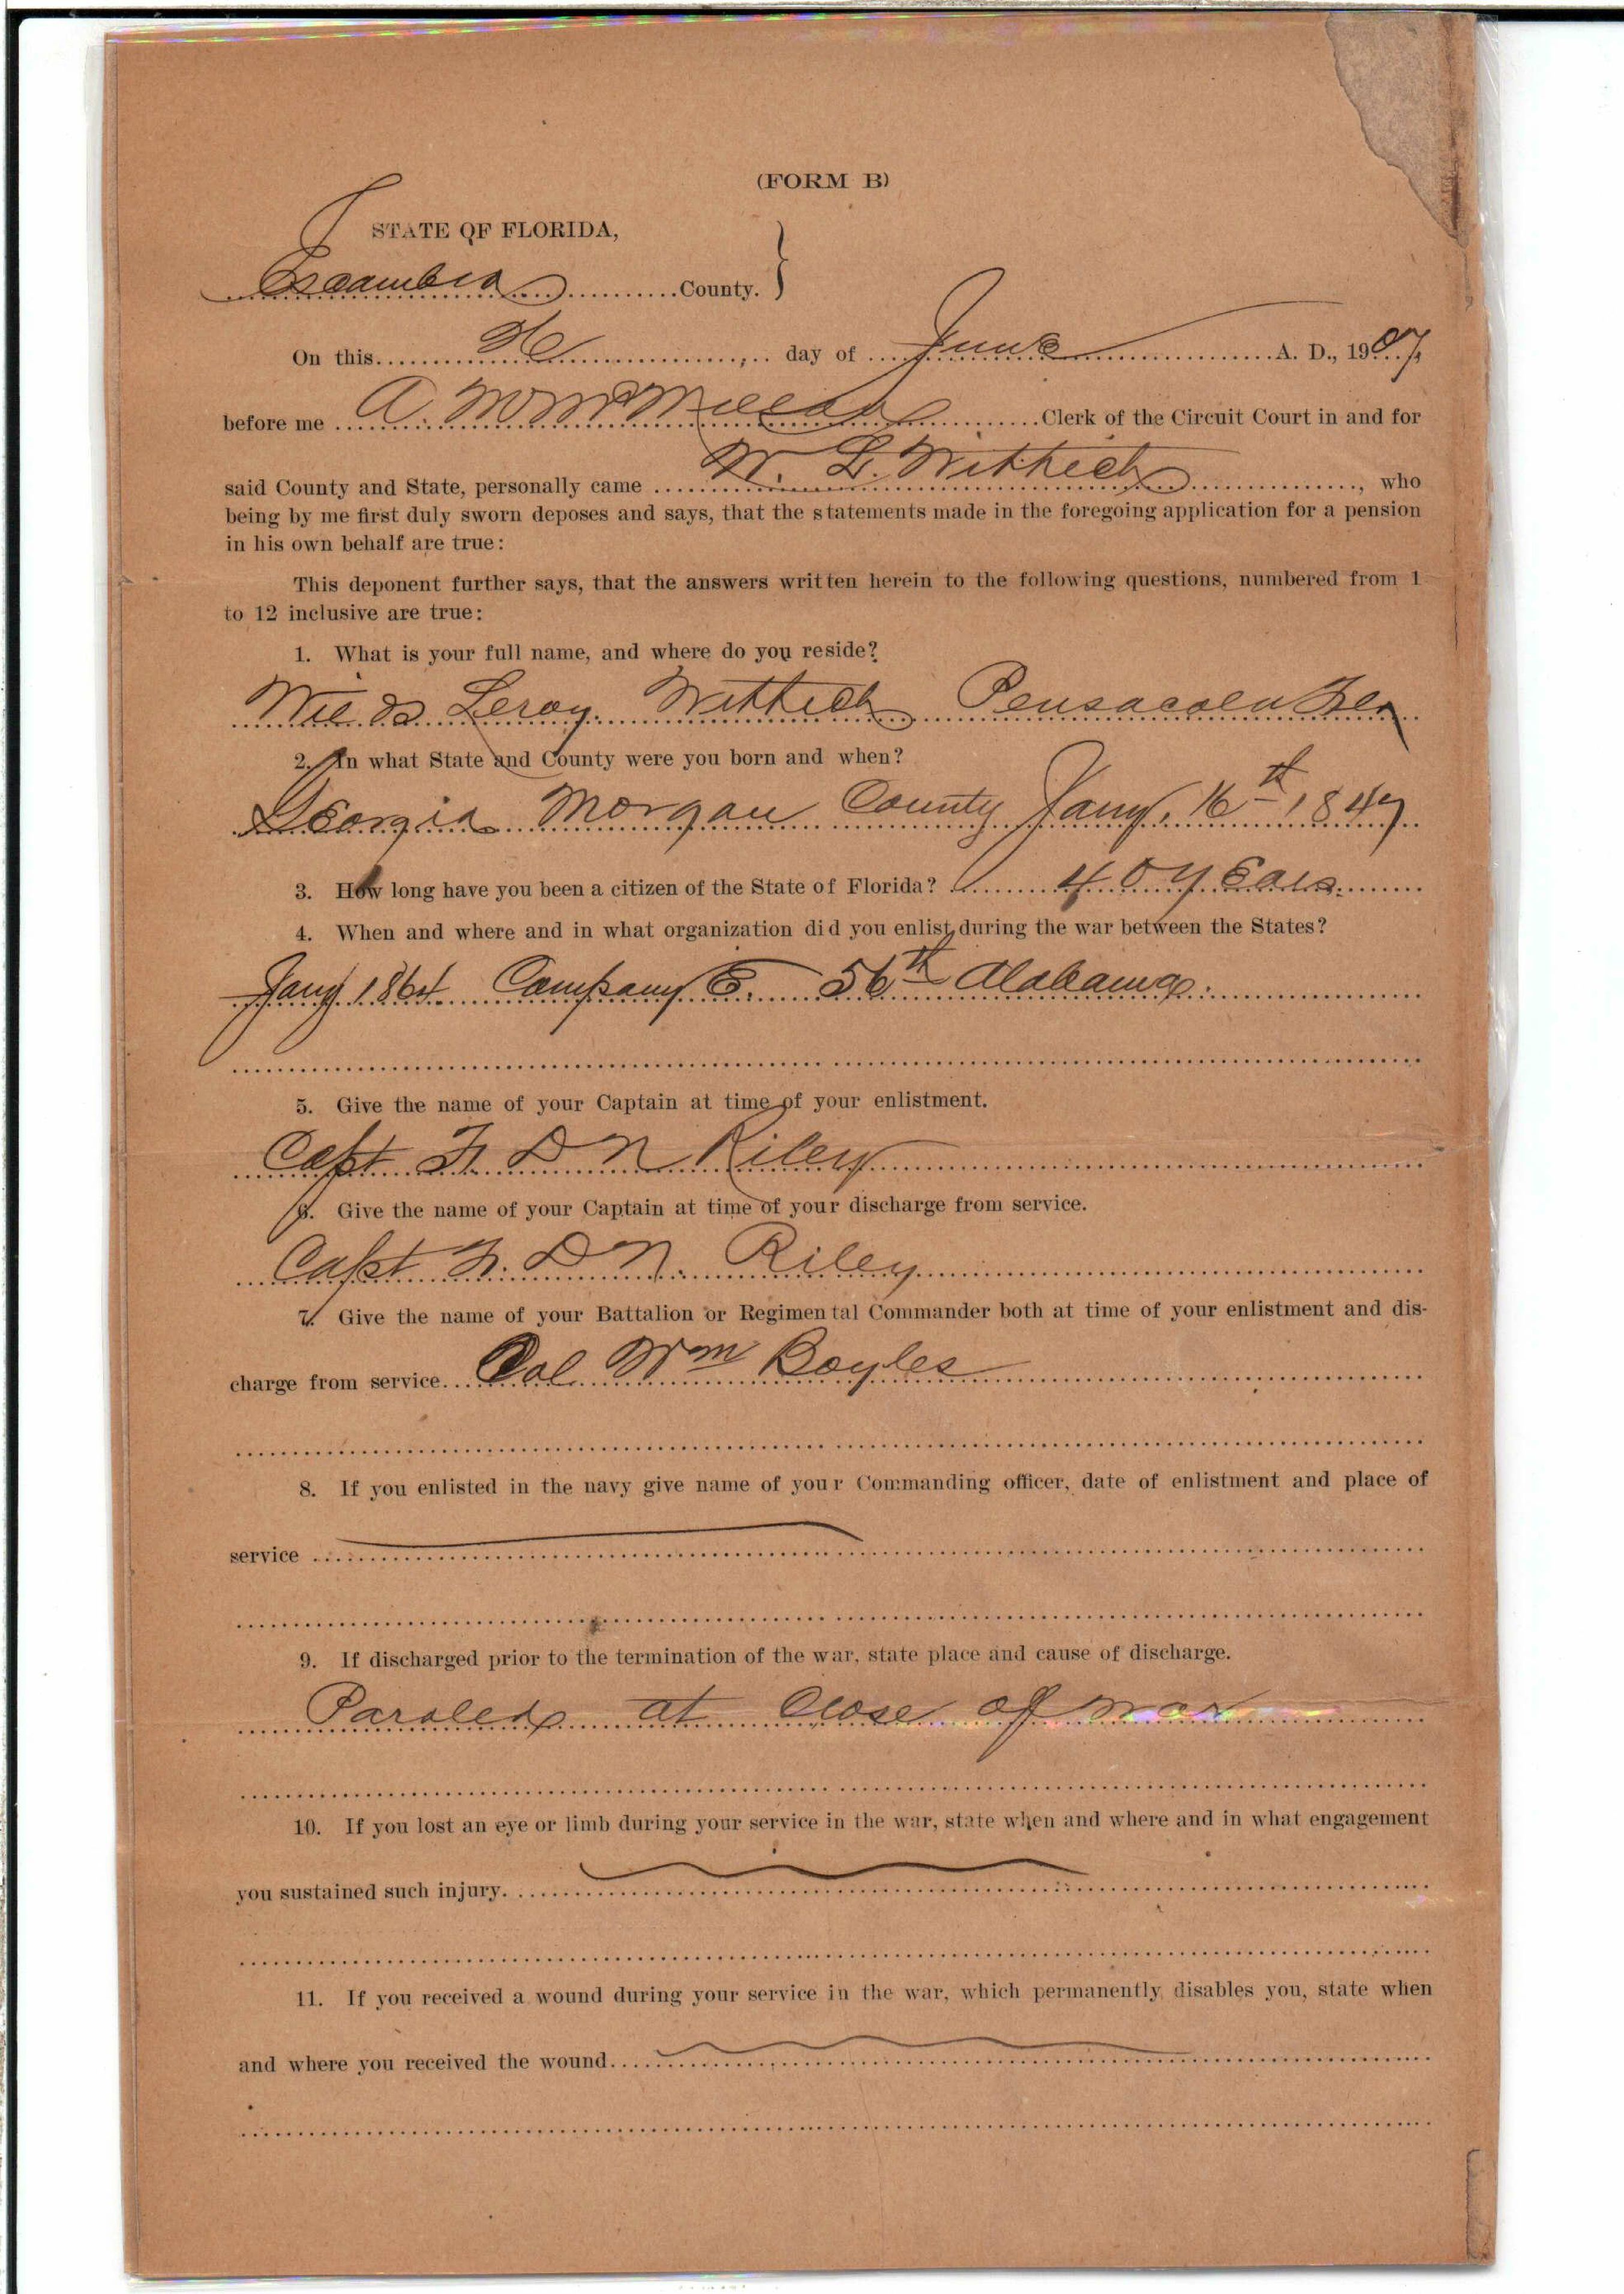 (FORM B)
STATE OF FLORIDA,
Escambia County.
On this day of June A. D., 1907,
before me A. M. McMillan Clerk of the Circuit Court in and for
said County and State, personally came W. L. Wittich, who
being by me first duly sworn deposes and says, that the statements made in the foregoing application for a pension
in his own behalf are true:
This deponent further says, that the answers written herein to the following questions, numbered from 1
to 12 inclusive are true:
1. What is your full name, and where do you reside?
Leroy Wittich Pensacola Fla
2. In what State and County were you born and when?
Georgia Morgan County Jany. 16th 1847
3. How long have you been a citizen of the State of Florida? 40 years.
4. When and where and in what organization did you enlist during the war between the States?
Jany 1864 Company E. 56th Alabama.
5. Give the name of your Captain at time of your enlistment.
Capt. F. D N Riley
6. Give the name of your Captain at time of your discharge from service.
Capt F. D N. Riley
7. Give the name of your Battalion or Regimental Commander both at time of your enlistment and dis-
charge from service. Col. Wm Boyles
8. If you enlisted in the navy give name of your Commanding officer, date of enlistment and place of
service
9. If discharged prior to the termination of the war, state place and cause of discharge.
Paroled at Close of war
10. If you lost an eye or limb during your service in the war, state when and where and in what engagement
you sustained such injury.
11. If you received a wound during your service in the war, which permanently disables you, state when
and where you received the wound.